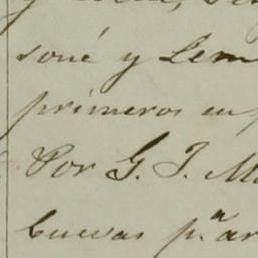 soné y Lem
primeros en p
Por G. T. Ma
buevas p.ª ar